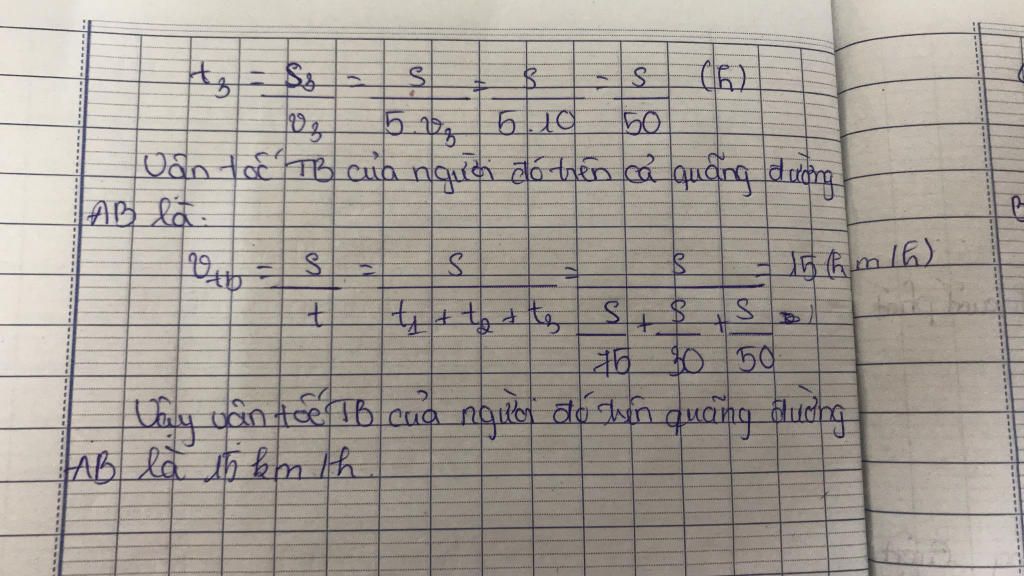 t₃ = S₃/v₃ = S/5.v₃ = S/5.10 = S/50 (h)
Vận tốc TB của người đó trên cả quãng đường
AB là:
v_tb = S/t = S/t₁ + t₂ + t₃ = S/(S/75 + S/30 + S/50) = 15 (km/h)
Vậy vận tốc TB của người đó trên quãng đường
AB là 15 km/h.